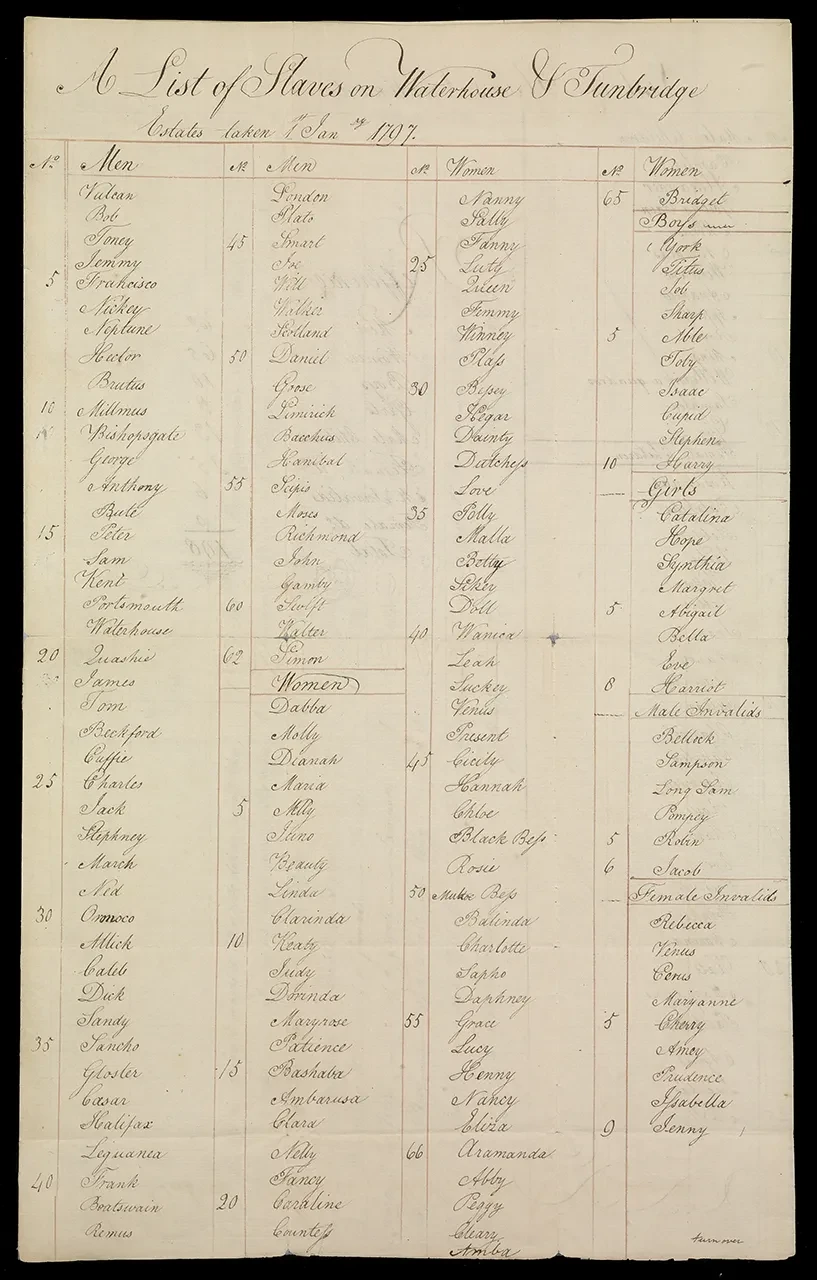 A List of Slaves on Waterhouse & Tunbridge
Estates taken 1st Janry 1797.
No Men
Vulcan
Bob
Toney
Jemmy
5 Francisco
Nickey
Neptune
Hector
Brutus
10 Millmus
Bishopsgate
George
Anthony
Bute
15 Peter
Sam
Kent
Portsmouth
Waterhouse
20 Quashie
James
Tom
Beckford
Cuffie
25 Charles
Jack
Stephney
March
Ned
30 Oronoco
Allick
Caleb
Dick
Sandy
35 Sancho
Gloster
Cæsar
Halifax
Leguanea
40 Frank
Boatswain
Remus
No Men
London
Plato
45 Smart
Joe
Will
Walker
Scotland
50 Daniel
Goose
Limirich
Bacchus
Hanibal
55 Scipio
Moses
Richmond
John
Gamby
60 Swift
Walter
62 Simon
Women
Dabba
Molly
Dianah
Maria
5 Milly
Juno
Beauty
Linda
Clarinda
10 Keaty
Judy
Dorinda
Maryrose
Patience
15 Bashaba
Ambarusa
Clara
Nelly
Fancy
20 Caroline
Countess
No Women
Nanny
Sally
Fanny
25 Luty
Queen
Femmy
Winney
Plass
30 Bessey
Hegar
Dainty
Dutchess
Love
35 Polly
Malla
Betty
Sikey
Doll
40 Wanica
Leah
Suckey
Venus
Present
45 Cicily
Hannah
Chloe
Black Bess
Rosie
50 Bess
Balinda
Charlotte
Sapho
Daphney
55 Grace
Lucy
Henny
Nancy
Eliza
66 Aramanda
Abby
Peggy
Cleary
Amba
No Women
65 Bridget
Boys
York
Titus
Job
Sharp
5 Able
Toby
Isaac
Cupid
Stephen
10 Harry
Girls
Catalina
Hope
Synthia
Margret
5 Abigail
Bella
Eve
8 Harriot
Male Invalids
Bellock
Sampson
Long Sam
Pompey
5 Robin
6 Jacob
Female Invalids
Rebecca
Venus
Cerus
Maryanne
5 Cherry
Amey
Prudence
Issabella
9 Jenny
turn over